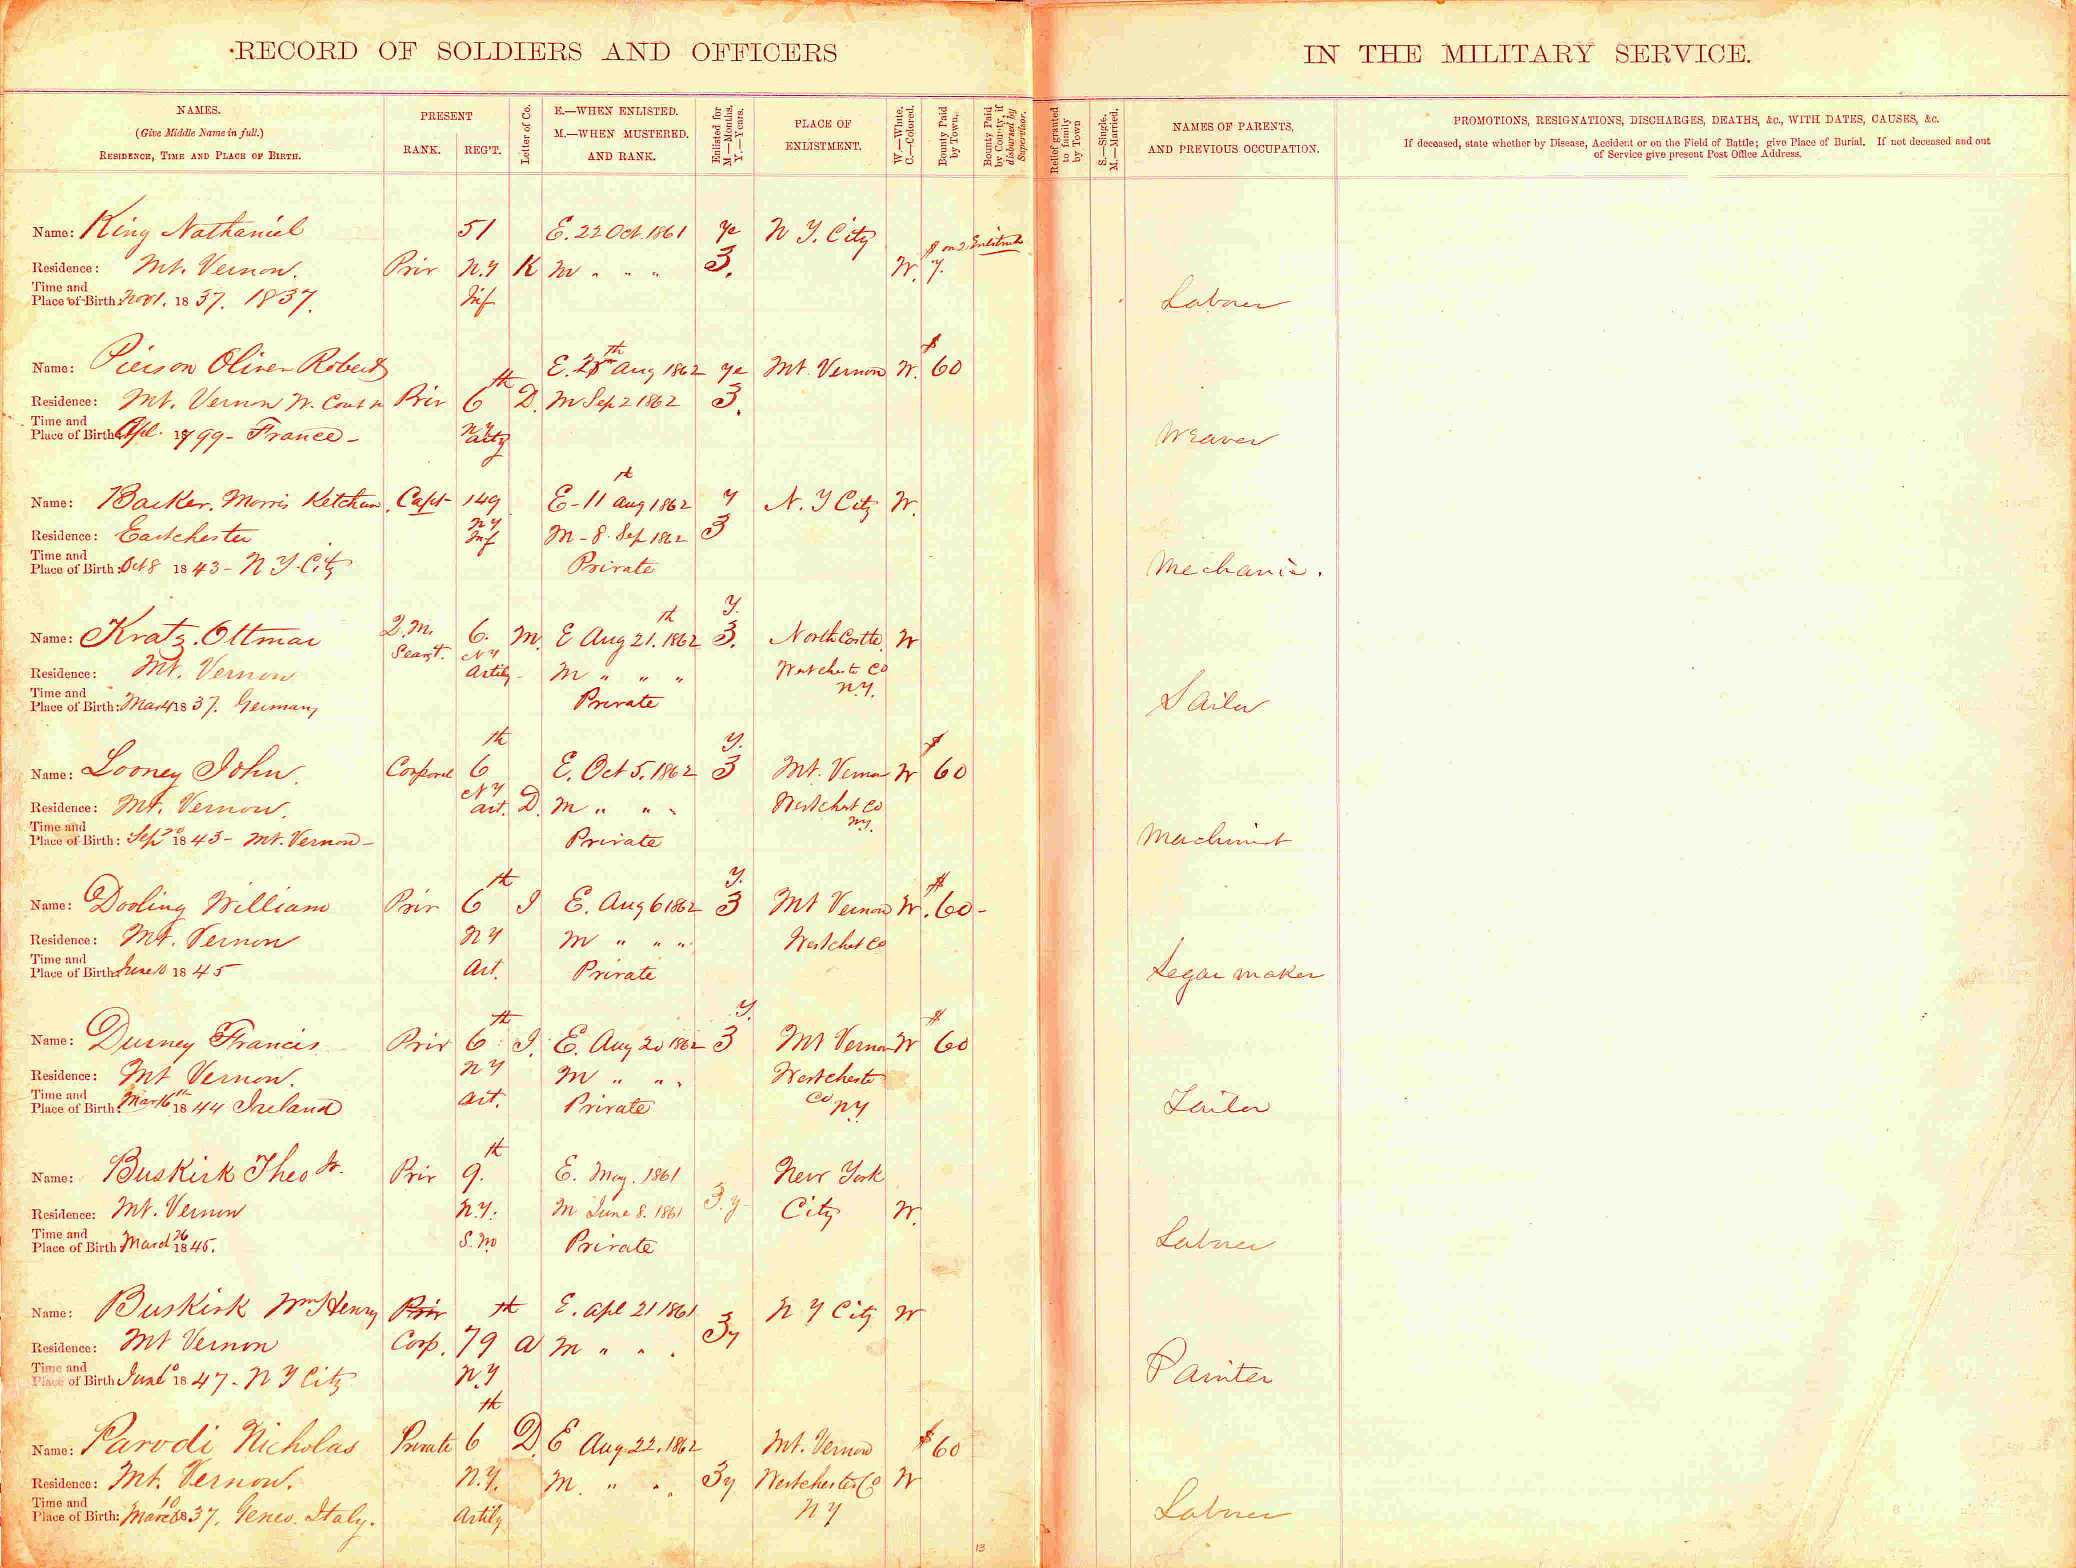 RECORD OF SOLDIERS AND OFFICERS IN THE MILITARY SERVICE.
NAMES.
(Give Middle Name in full.)
RESIDENCE, TIME AND PLACE OF BIRTH.
PRESENT
RANK. REG'T.
Letter of Co.
E.—WHEN ENLISTED.
M.—WHEN MUSTERED.
AND RANK.
Enlisted for
M.—Months.
Y.—Years.
PLACE OF
ENLISTMENT.
W.—White.
C.—Colored.
Bounty Paid
by Town.
Bounty Paid
by County, if
disbursed by
Supervisor.
Relief granted
to family
by Town
S.—Single.
M.—Married.
NAMES OF PARENTS,
AND PREVIOUS OCCUPATION.
PROMOTIONS, RESIGNATIONS, DISCHARGES, DEATHS, &c., WITH DATES, CAUSES, &c.
If deceased, state whether by Disease, Accident or on the Field of Battle; give Place of Burial. If not deceased and out
of Service give present Post Office Address.
Name: King Nathaniel 51 E. 22 Oct. 1861 ye N Y. City $ on 2. Enlistmt
Residence: Mt. Vernon. Priv N.Y K M " " " 3. W. 7.
Time and
Place of Birth: Nov 1. 1837. 1837. Inf Laborer
Name: Pierson Oliver Robert E. Aug 1862 ye Mt. Vernon W. $60
Residence: Mt. Vernon W. Priv 6th D. M Sep 2 1862 3.
Time and
Place of Birth: Apl. 1799 - France - NY Arty Weaver
Name: Barker. Morris Ketcham. Capt 149 E - 11th Aug 1862 y N. Y City W.
Residence: Eastchester NY Inf M - 8. Sep 1862 3
Time and
Place of Birth: Oct 8 1843 - N Y City Private Mechanic.
Name: Kratz. Ottmar Q.M. Seargt. 6. M. E Aug 21.th 1862 Y. 3. North Castle W
Residence: Mt. Vernon NY Artily M " " " Westcheste Co N.Y.
Time and
Place of Birth: Mar 4 1837. Germany Private Sailor
Name: Looney John Corporal 6th E. Oct 5. 1862 Y. 3 Mt. Vernon W $60
Residence: Mt. Vernon. NY Art. D. M " " " Westchest Co NY.
Time and
Place of Birth: Sep 20 1843 - Mt. Vernon - Private Machinist
Name: Dooling William Priv 6th I E. Aug 6 1862 Y. 3 Mt Vernon W. $60 -
Residence: Mt. Vernon NY M " " " Westchest Co
Time and
Place of Birth: June 10 1845 Art. Private Segar maker
Name: Durney Francis Priv 6th I. E. Aug 20 1862 Y. 3 Mt Vernon W $60
Residence: Mt Vernon. NY M " " " Westcheste
Time and
Place of Birth: Mar 16th 1844 Ireland Art. Private Co NY. Tailor
Name: Buskirk Theo Jr. Priv 9.th E. May. 1861 New York
Residence: Mt. Vernon N.Y. M June 8. 1861 3. y City W.
Time and
Place of Birth: March 26 1845. S. M Private Laborer
Name: Buskirk Wm Henry Priv th E. Apl 21 1861 N Y City W
Residence: Mt Vernon Corp. 79 A M " " " 3y
Time and
Place of Birth June 10 1847 - N Y City N.Y Painter
Name: Parodi Nicholas Private 6th D. E Aug 22. 1862 Mt. Vernon $60
Residence: Mt. Vernon. N.Y. M. " " " 3y Westchester Co W
Time and
Place of Birth: March 10 1837. Geneo. Italy. Artily NY Laborer
13